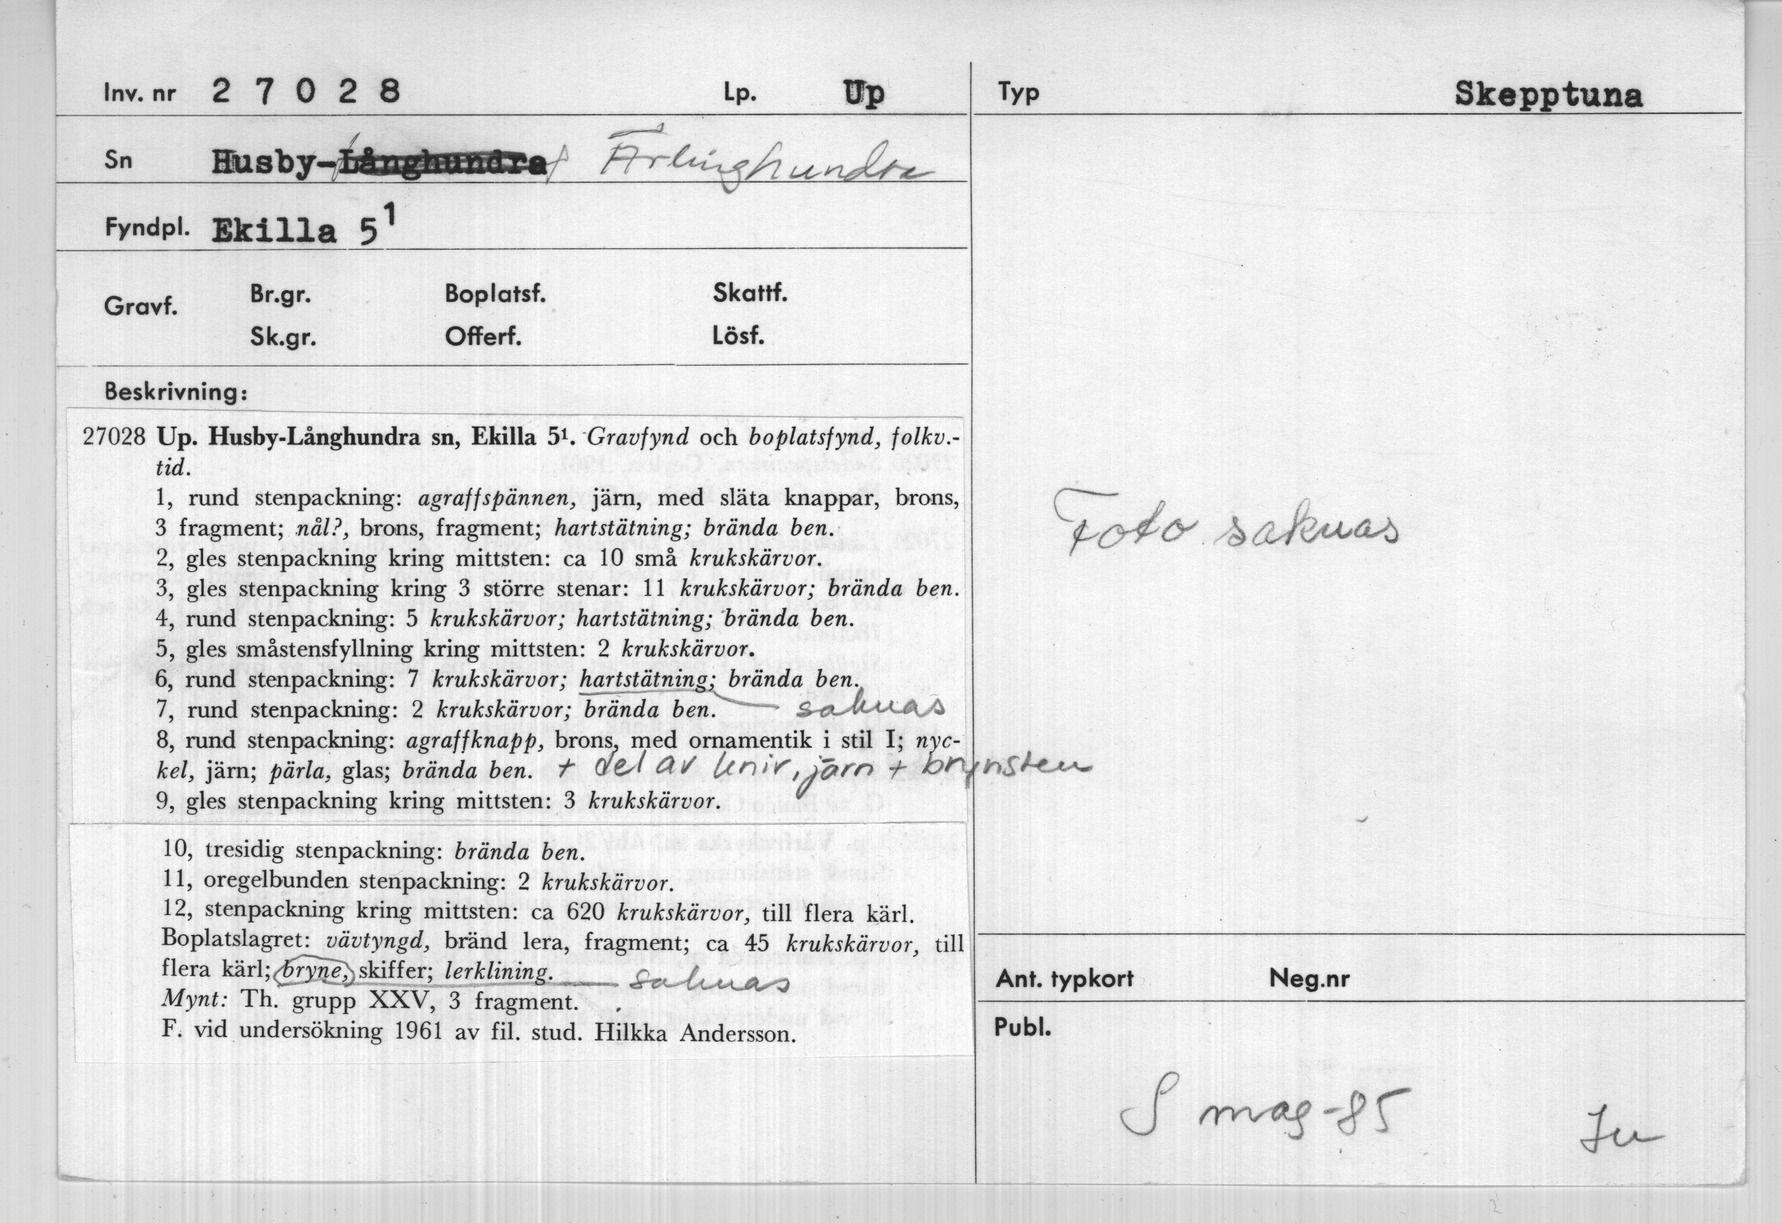 Inv. nr 2 7 0 2 8 Lp. Up
Sn Husby-Långhundra Ärlinghundra
Fyndpl. Ekilla 5¹
Gravf. Br.gr. Boplatsf. Skattf.
Sk.gr. Offerf. Lösf.
Beskrivning:
27028 Up. Husby-Långhundra sn, Ekilla 5¹. Gravfynd och boplatsfynd, folkv.-
tid.
1, rund stenpackning: agraffspännen, järn, med släta knappar, brons,
3 fragment; nål?, brons, fragment; hartstätning; brända ben.
2, gles stenpackning kring mittsten: ca 10 små krukskärvor.
3, gles stenpackning kring 3 större stenar: 11 krukskärvor; brända ben.
4, rund stenpackning: 5 krukskärvor; hartstätning; brända ben.
5, gles småstensfyllning kring mittsten: 2 krukskärvor.
6, rund stenpackning: 7 krukskärvor; hartstätning; brända ben.
7, rund stenpackning: 2 krukskärvor; brända ben. saknas
8, rund stenpackning: agraffknapp, brons, med ornamentik i stil I; nyc-
kel, järn; pärla, glas; brända ben. + del av kniv, järn + brynsten
9, gles stenpackning kring mittsten: 3 krukskärvor.
10, tresidig stenpackning: brända ben.
11, oregelbunden stenpackning: 2 krukskärvor.
12, stenpackning kring mittsten: ca 620 krukskärvor, till flera kärl.
Boplatslagret: vävtyngd, bränd lera, fragment; ca 45 krukskärvor, till
flera kärl; bryne, skiffer; lerklining. saknas
Mynt: Th. grupp XXV, 3 fragment.
F. vid undersökning 1961 av fil. stud. Hilkka Andersson.
Typ Skepptuna
Foto saknas
Ant. typkort Neg.nr
Publ.
S mag-85